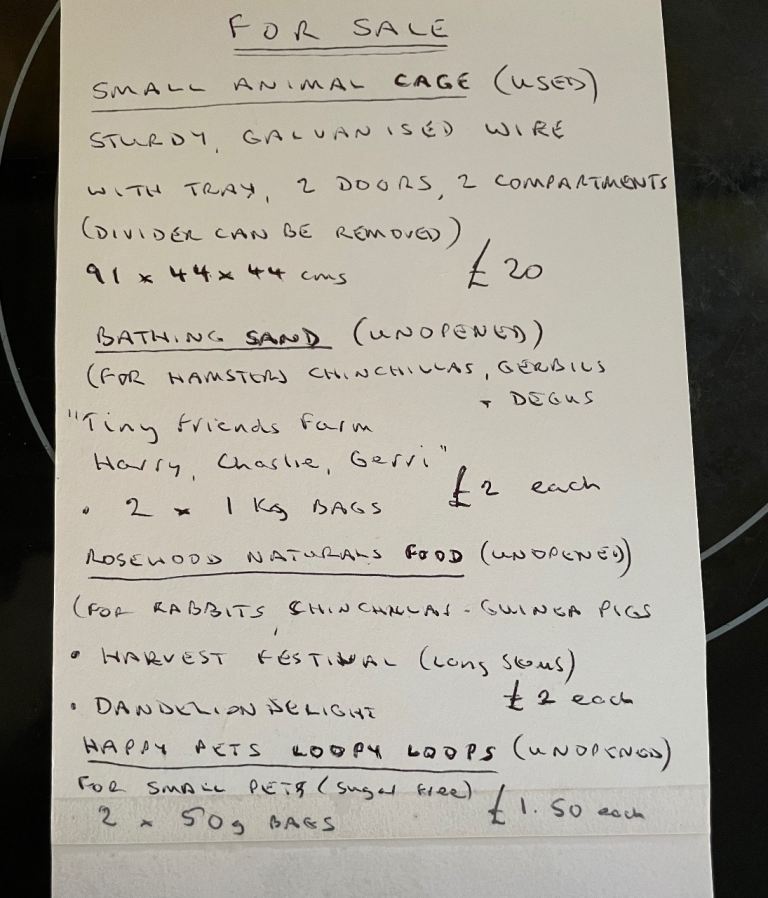 FOR SALE
SMALL ANIMAL CAGE (USED)
STURDY, GALVANISED WIRE
WITH TRAY, 2 DOORS, 2 COMPARTMENTS
(DIVIDER CAN BE REMOVED)
91 x 44 x 44 cms £20
BATHING SAND (UNOPENED)
(FOR HAMSTERS CHINCHILLAS, GERBILS
+ DEGUS
"Tiny friends Farm
Harry, Charlie, Gerri"
• 2 x 1 Kg BAGS £2 each
ROSEWOOD NATURALS FOOD (UNOPENED)
(FOR RABBITS, CHINCHILLAS - GUINEA PIGS
• HARVEST FESTIVAL (Long Stems)
• DANDELION DELIGHT £2 each
HAPPY PETS LOOPY LOOPS (UNOPENED)
FOR SMALL PETS (Sugar free)
2 x 50g BAGS £1.50 each